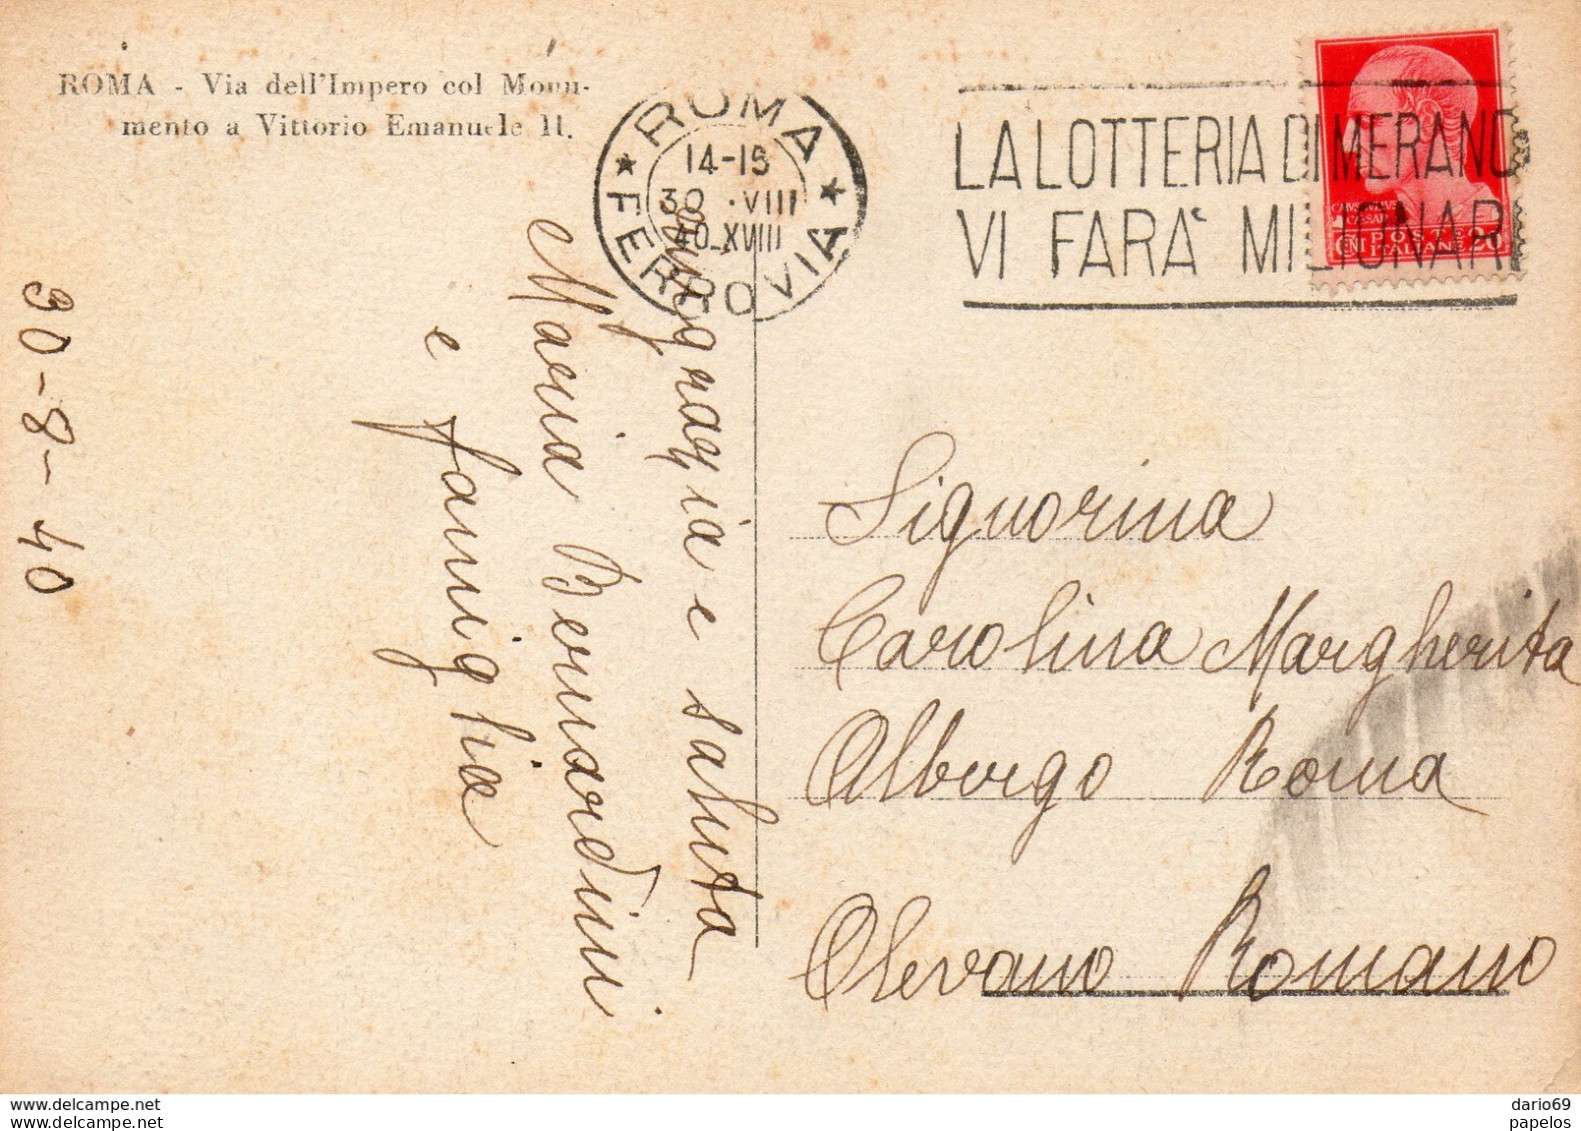 ROMA - Via dell'Impero col Monu-
mento a Vittorio Emanuele II.
ROMA
14-15
30 VIII
40-XVIII
FERROVIA
LA LOTTERIA DI MERANO
VI FARA' MILIONARI
POSTE
ITALIANE
CENT 20
30-8-40
ringrazia e saluta
Maria Bernardini
e famiglia
Signorina
Carolina Margherita
Albergo Roma
Olevano Romano
www.delcampe.net
© 2024
dario69
papelos